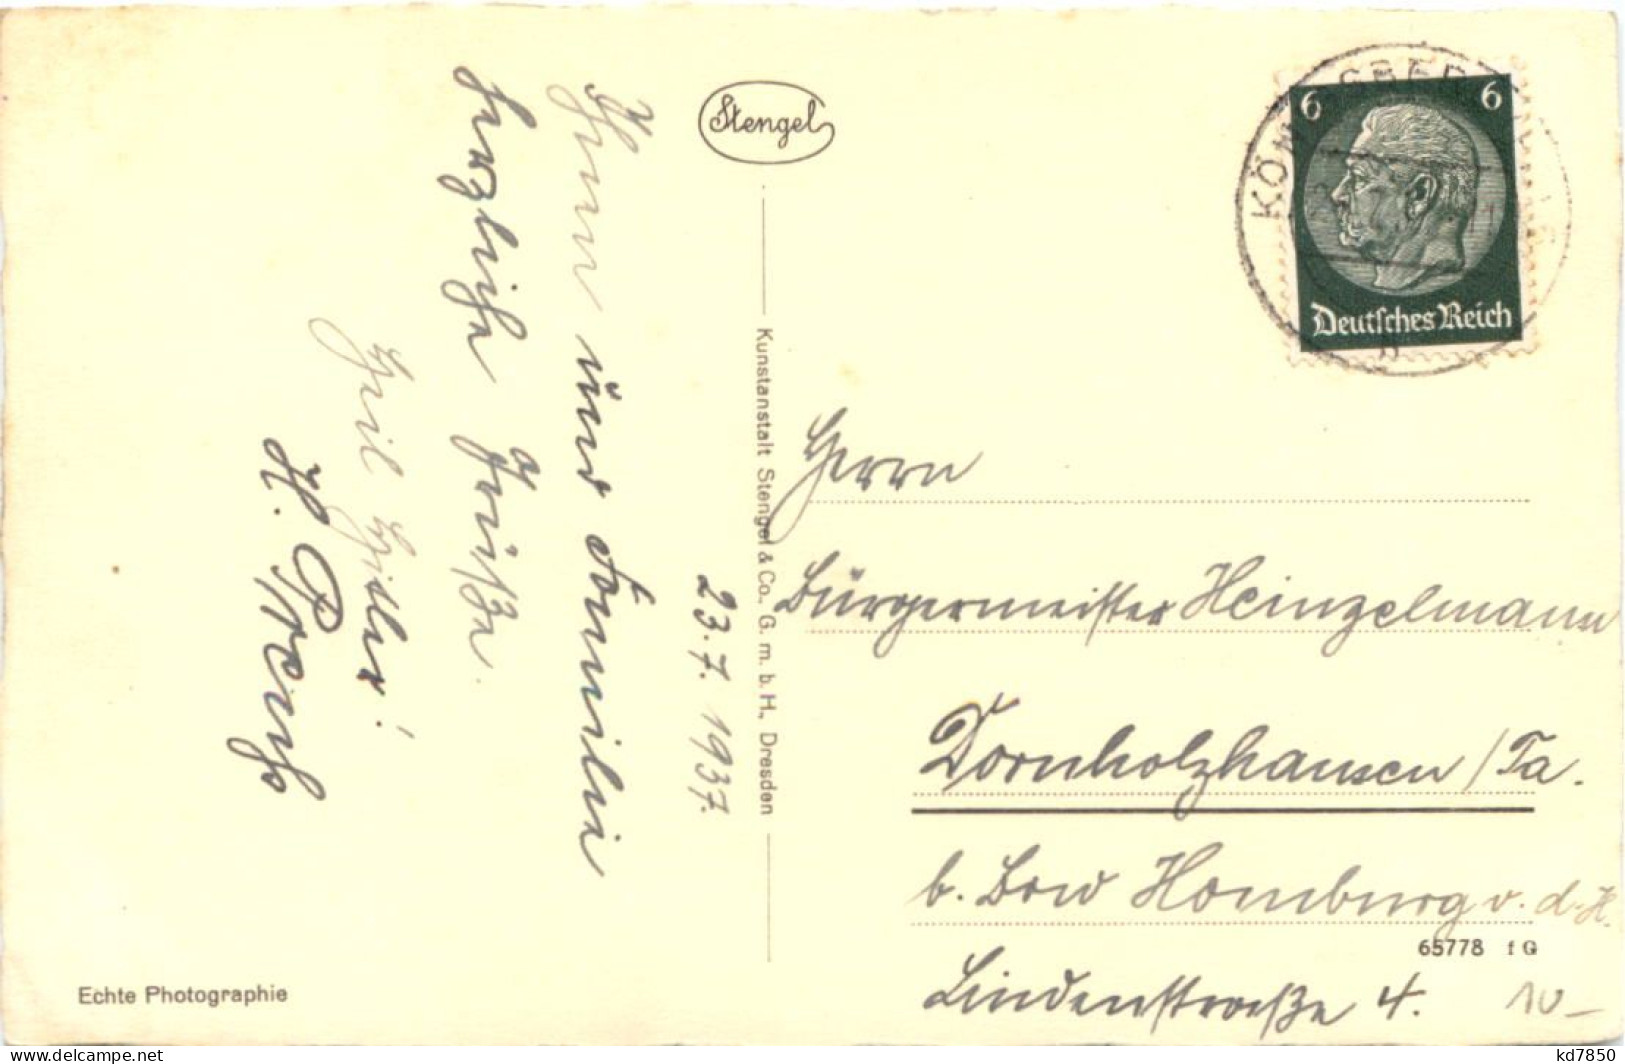 Ihnen und Familie
herzliche Grüße.
Heil Hitler!
H. Preuß
23.7.1937.
Stengel
Kunstanstalt Stengel & Co., G. m. b. H., Dresden
6 6
Deutsches Reich
Herrn
Bürgermeister Heinzelmann
Dornholzhausen / Ta.
b. Bad Homburg v. d. H.
65778 f G
Lindenstraße 4.
10-
Echte Photographie
kd7850